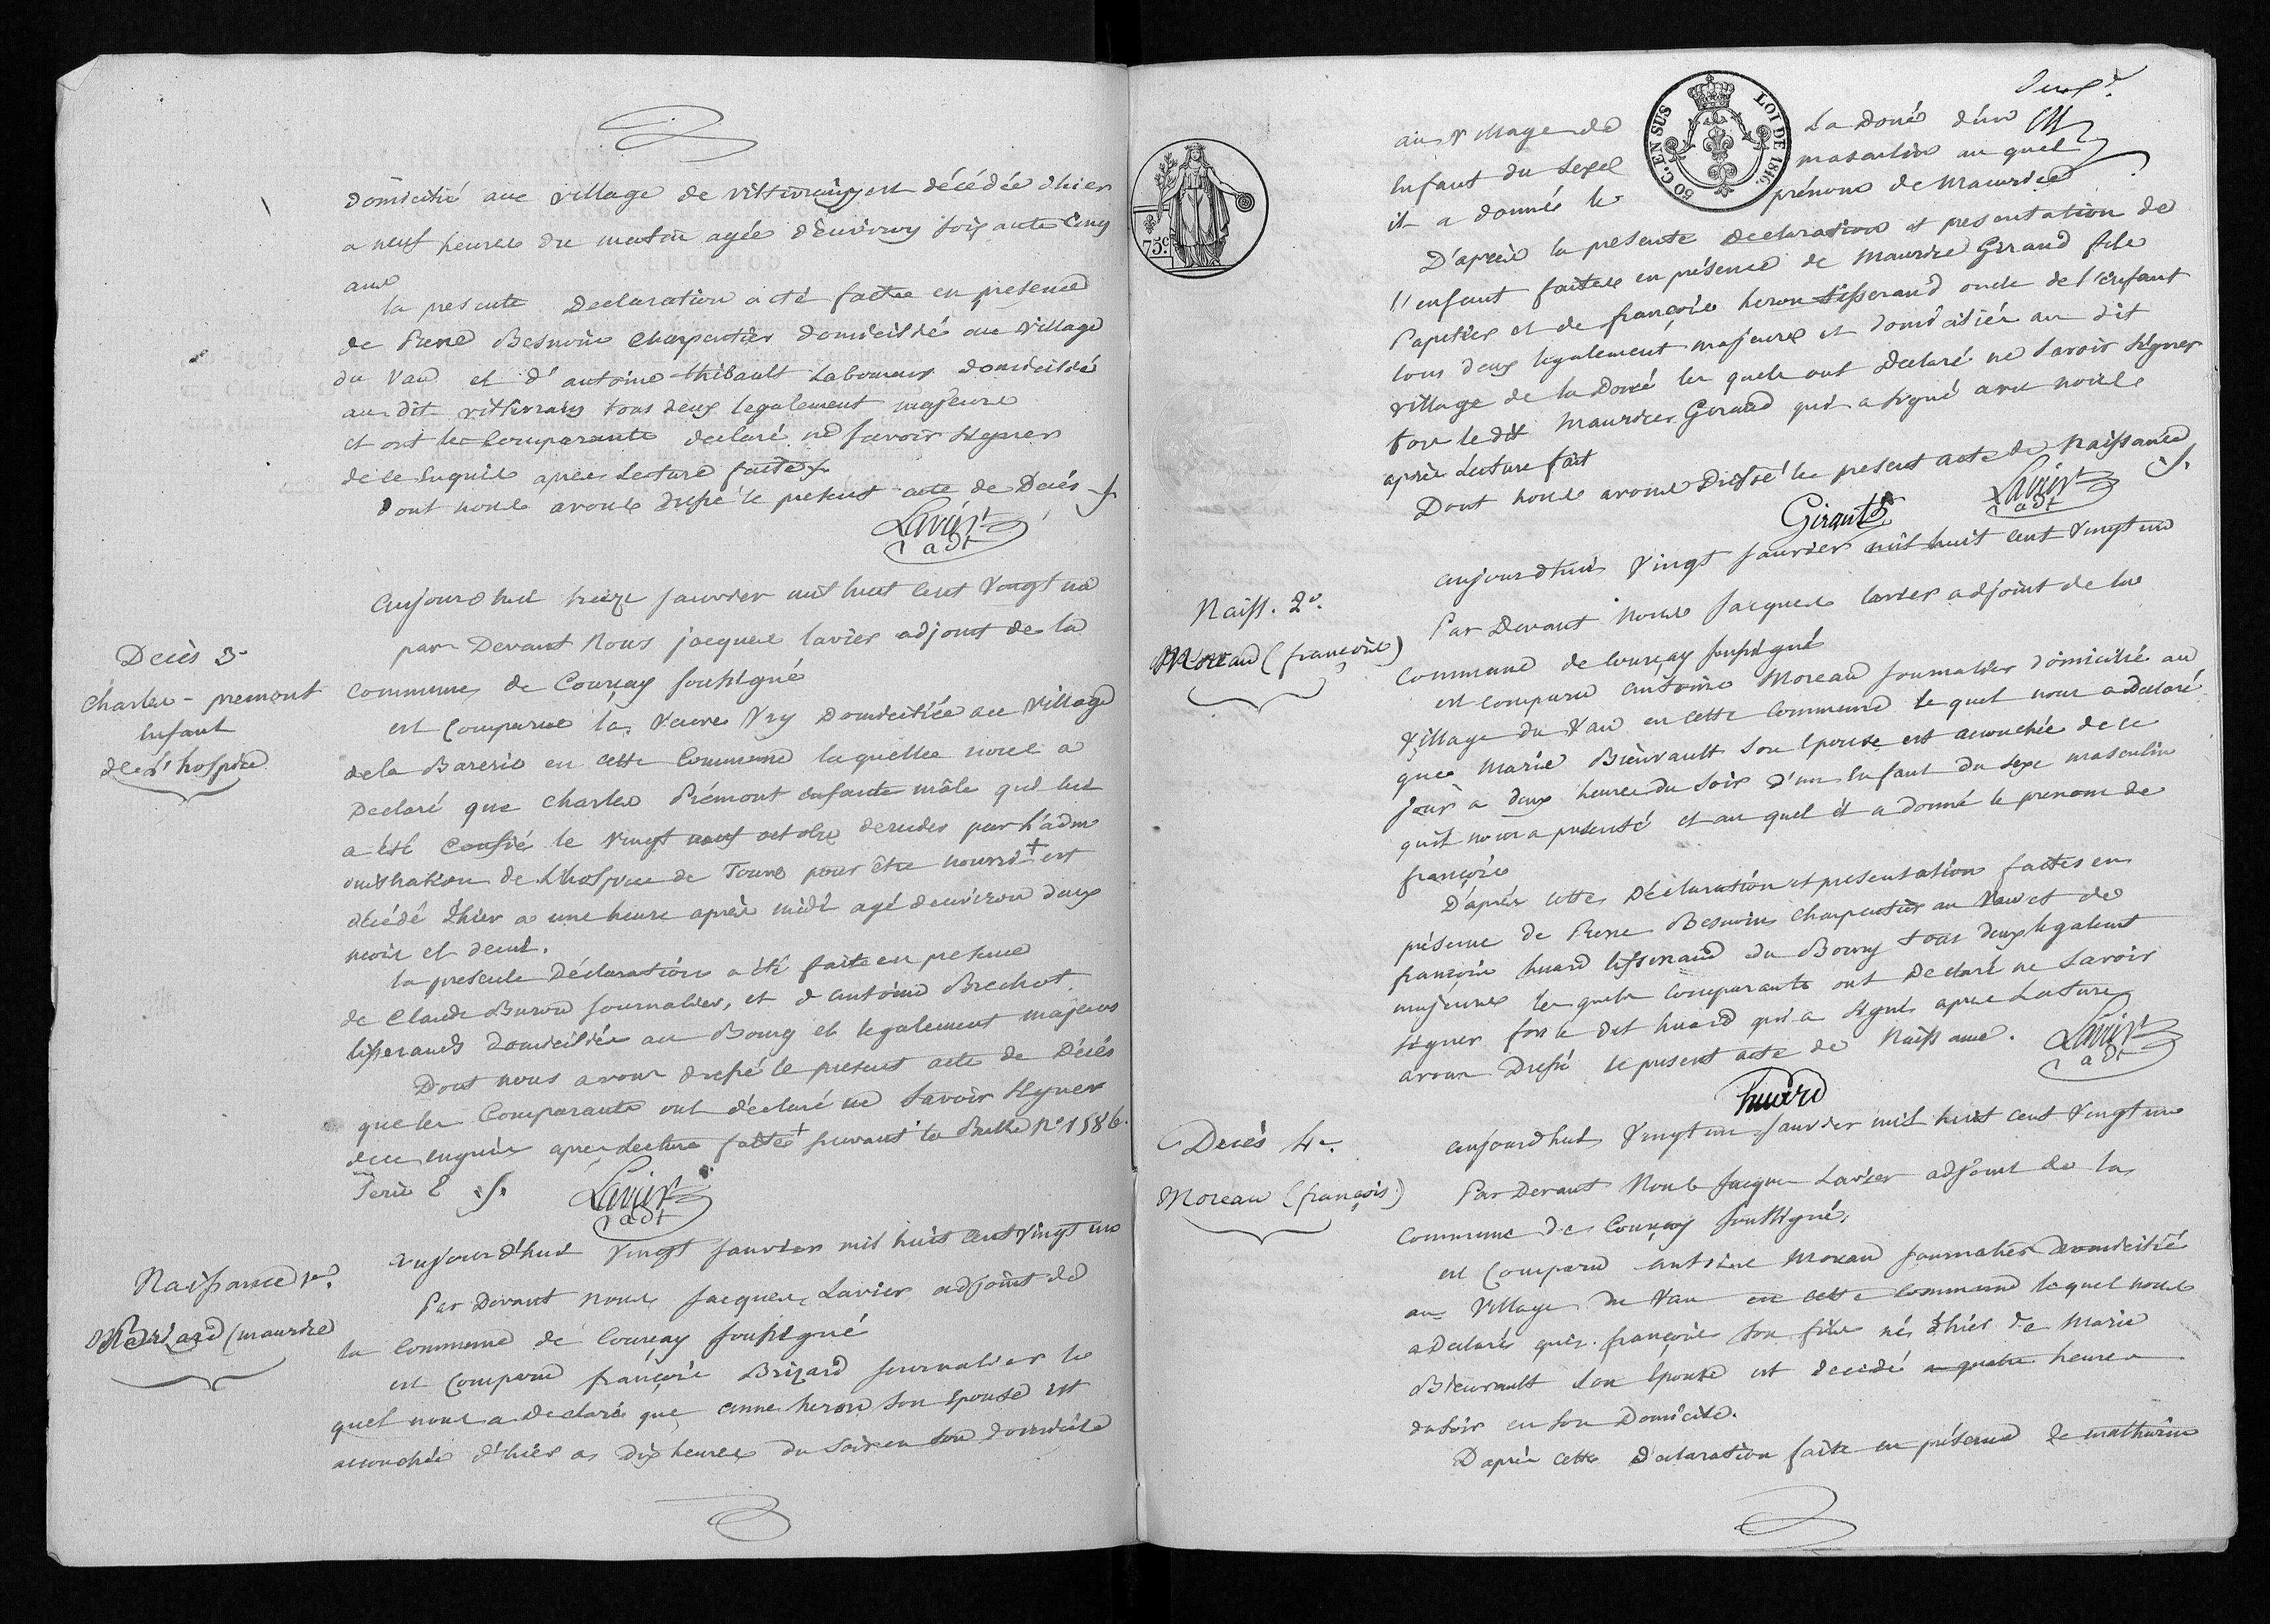 domicilié au village de vittivrain est décédée d'hier
a neuf heures du matin agée d'environ soixante cinq
ans
la presente Declaration a été faitte en presence
de Rene Besnoin Charpentier domicilié au village
du Vau et d'antoine thibault Laboureur domicilié
au dit vittivrain tous deux legalement majeurs
et ont les Comparants declaré ne savoir signer
de ce Enquis apres Lecture faite
dont nous avons dressé le present acte de Décés
Lavier
adt
Decès 3e
Charles premont
Enfant
de l'hospice
aujourd'hui treize janvier mil huit cent Vingt un
par Devant Nous jacques lavier adjoint de la
Commune de Courçay soussigné
est Comparue la Veuve Vry Domiciliée au village
de la Barerie en cette Commune laquelle nous a
Declaré que Charles Prémont enfant mâle qui lui
a été Confié le vingt neuf octobre dernier par l'adm
inistration de L'hospice de Tours pour être nourri + est
décédé d'hier a une heure après midi agé d'environ deux
mois et demi.
la presente Déclaration a été faite en presence
de Claude Buron Journalier, et d'antoine Brechot
tisserands domiciliés au Bourg et legalement majeurs
Dont nous avons dressé le present acte de Décés
que les Comparants ont déclaré ne Savoir Signer
de ce enquis apres lecture faitte + suivant la Bulle No 1586
Serie E
Lavier
adt
Naissance 1re
Brizard (maurice
aujourd'hui Vingt Janvier mil huit Cent Vingt un
Par Devant nous Jacques Lavier adjoint de
la Commune de Courçay soussigné
est Comparu françois Brizard journalier le
quel nous a declaré que anne heron son Epouse est
accouchée d'hier a Dix heures du Soir en son domicile
Deux
au Village de La Doué d'un
Enfant du Sexe masculin au quel
il a donné le prénom de Maurice
D'après la presente Declaration et presentation de
l'enfant faites en présence de Maurice Giraud fils
Papetier et de françois heron tisserand oncle de l'enfant
tous deux legalement majeurs et domiciliés au dit
village de la Doué les quels ont Declaré ne Savoir Signer
fors le dit Maurice Giraud qui a signé avec nous
après Lecture fait
Dont nous avons Dressé le present acte de Naissance
Lavier
adt
Girault
75c.
50 C. EN SUS LOI DE 1816.
Naiss. 2e.
Moreau (françois)
aujourd'hui Vingt Janvier mil huit Cent Vingt un
Par Devant Nous Jacques lavier adjoint de la
Commune de Courçay soussigné
est Comparu antoine Moreau journalier domicilié au
Village du Vau en cette Commune le quel nous a declaré
que Marie Bienvault Son Epouse est accouchée de ce
jour a deux heures du Soir d'un Enfant du sexe masculin
qu'il nous a présenté et au quel il a donné le prenom de
françois
D'après cette Déclaration et presentation faites en
présence de Rene Besnoin Charpentier au Vau et de
françois huard tisserand du Bourg tous deux legalement
majeurs les quels Comparants ont Declaré ne Savoir
Signer fors le dit huard qui a Signé apres Lecture
avons Dressé le present acte de Naissance.
Lavier
adt
huard
Decès 4e
Moreau (françois)
aujourd'hui Vingt un Janvier mil huit Cent Vingt un
Par Devant Nous Jacques Lavier adjoint de la
Commune de Courçay soussigné
est Comparu antoine Moreau Journalier Domicilié
au Village du Vau en cette Commune lequel nous
a Declaré que françois Son fils né d'hier de Marie
Bienvault Son Epouse est decedé a quatre heures
du Soir en Son Domicile.
D'après cette Declaration faite en présence de mathurin